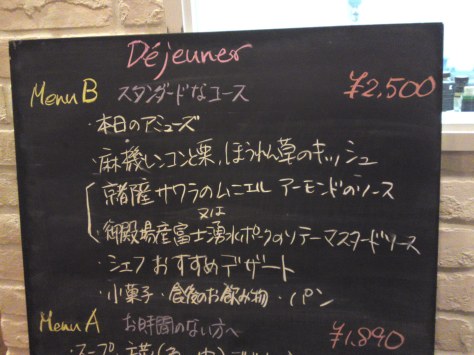 Déjeuner
Menu B スタンダードなコース ¥2,500
・本日のアミューズ
・麻機レンコンと栗、ほうれん草のキッシュ
産サワラのムニエル アーモンドのソース
又は
・御殿場産富士湧水ポークのソテーマスタードソース
・シェフおすすめデザート
・小菓子・食後のお飲み物・パン
Menu A お時間のない方へ ¥1,890
・スープ・